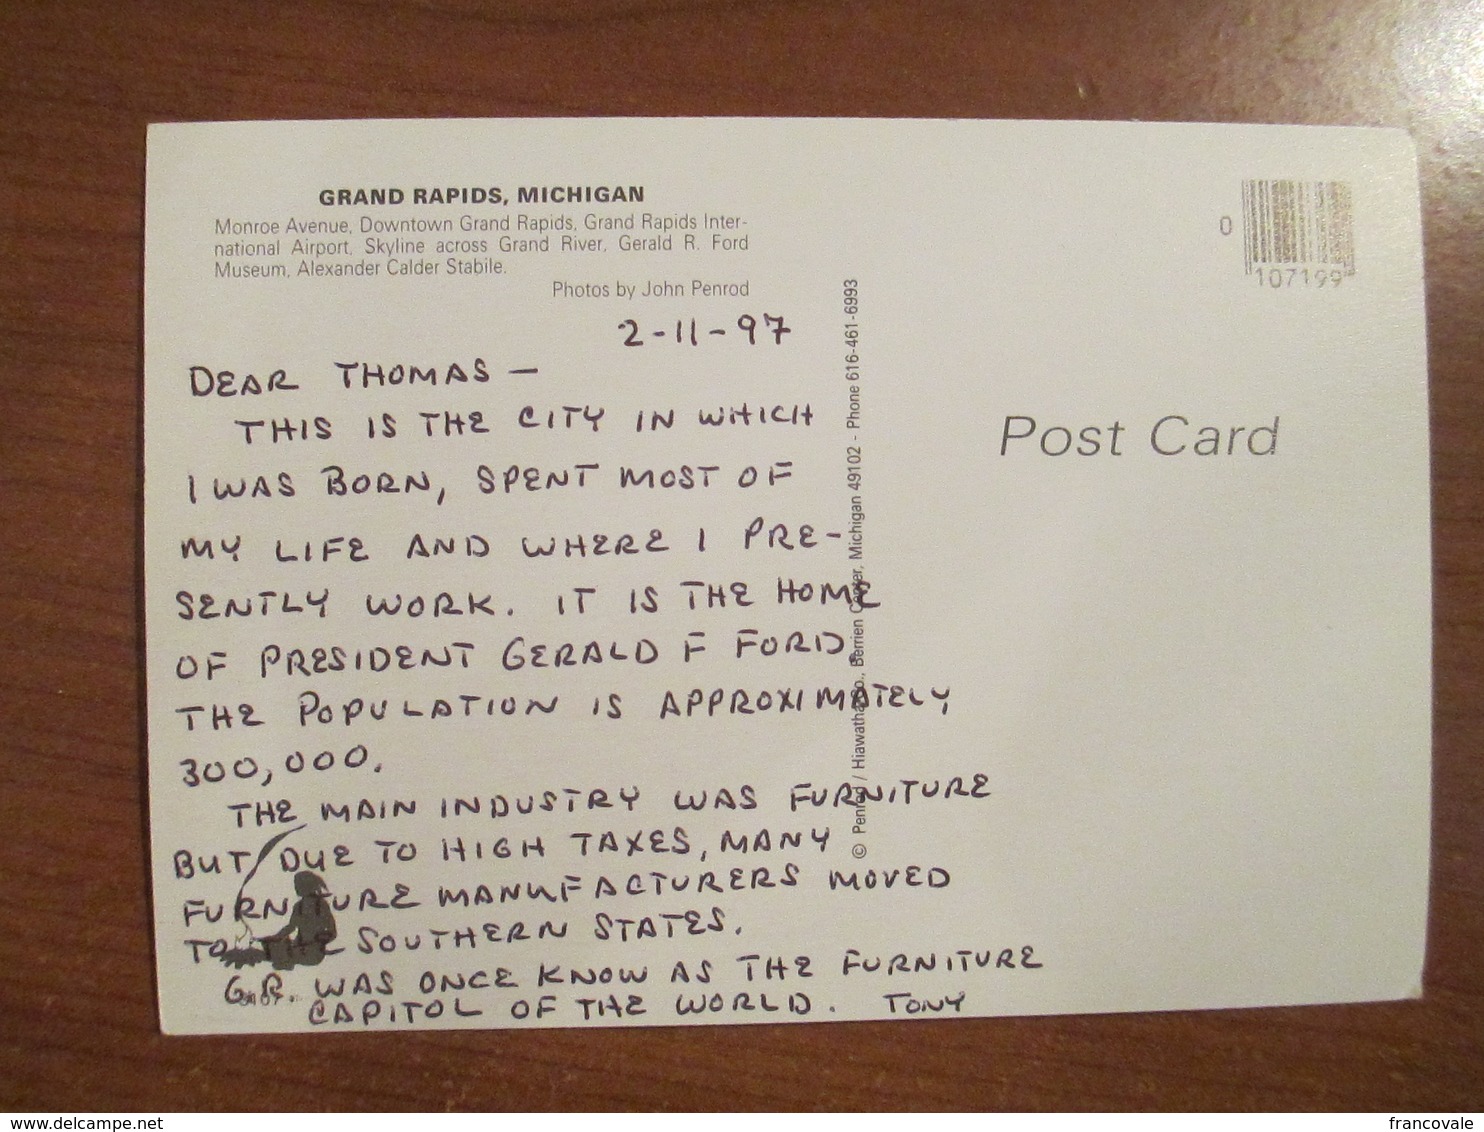 GRAND RAPIDS, MICHIGAN
Monroe Avenue, Downtown Grand Rapids, Grand Rapids Inter-
national Airport, Skyline across Grand River, Gerald R. Ford
Museum, Alexander Calder Stabile.
Photos by John Penrod
2-11-97
DEAR THOMAS —
THIS IS THE CITY IN WHICH
I WAS BORN, SPENT MOST OF
MY LIFE AND WHERE I PRE-
SENTLY WORK. IT IS THE HOME
OF PRESIDENT GERALD F FORD.
THE POPULATION IS APPROXIMATELY
300,000.
THE MAIN INDUSTRY WAS FURNITURE
BUT DUE TO HIGH TAXES, MANY
FURNITURE MANUFACTURERS MOVED
TO THE SOUTHERN STATES.
G.R. WAS ONCE KNOW AS THE FURNITURE
CAPITOL OF THE WORLD. TONY
© Penrod / Hiawatha Co., Berrien Center, Michigan 49102 - Phone 616-461-6993
0
107199
Post Card
delcampe.net
francovale